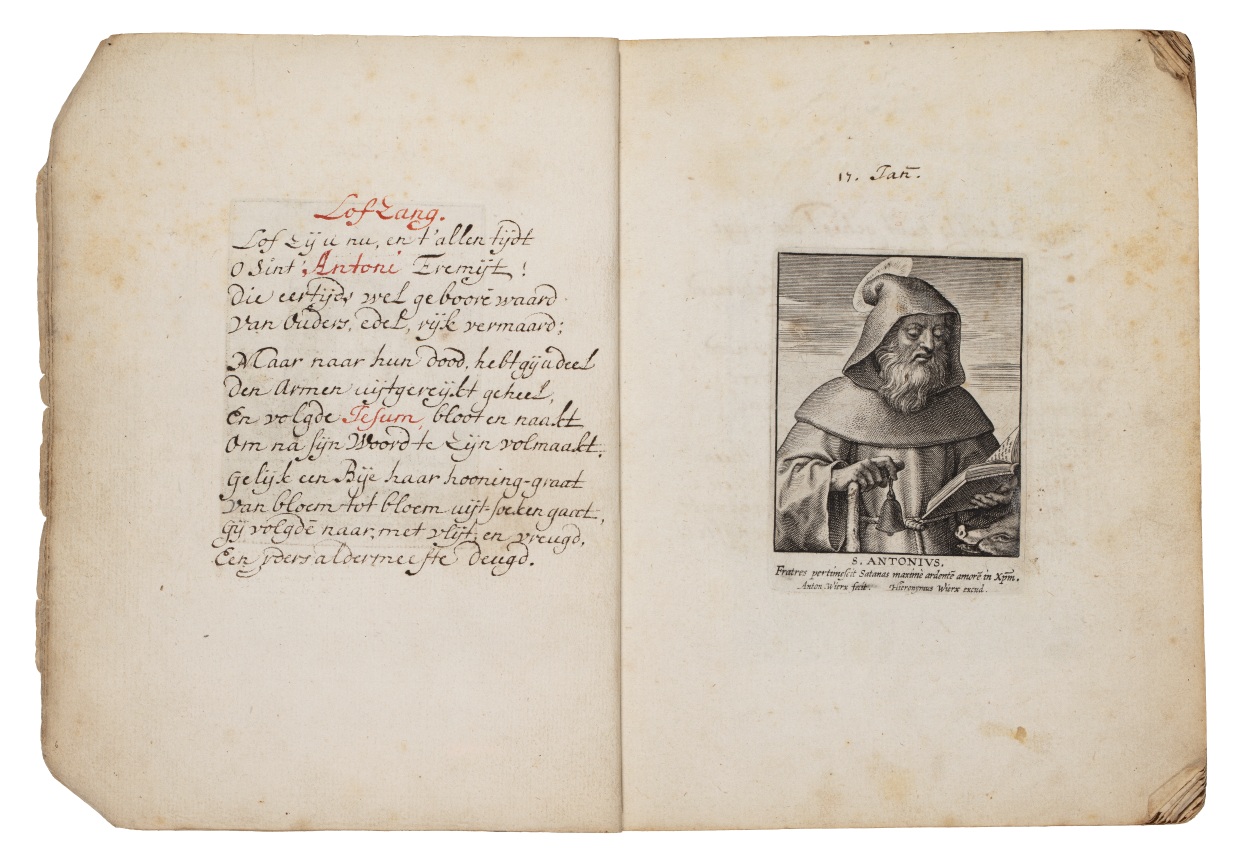 Lof Zang.
Lof Zij u nu, en t'allen tijdt
O Sint Antoni Eremijt !
Die eertijds wel geboorē waard
Van Ouders, edel, rijk vermaard;
Maar naar hun dood, hebt gij u deel
den Armen uijtgereijkt geheel,
En volgde Jesum, bloot en naakt
Om na sijn Woord te Zijn volmaakt.
Gelijk een Bije haar hooning-graat
van bloem tot bloem uijt-soeken gaat,
Gij volgdē naar, met vlijt, en vreugd,
Een yders aldermeeste deugd.
17. Jan̄.
S. ANTONIVS.
Fratres pertimescit Satanas maximè ardentē amorē in Xp̄m.
Anton .Wierx fecit. Hieronymus Wierx excud.